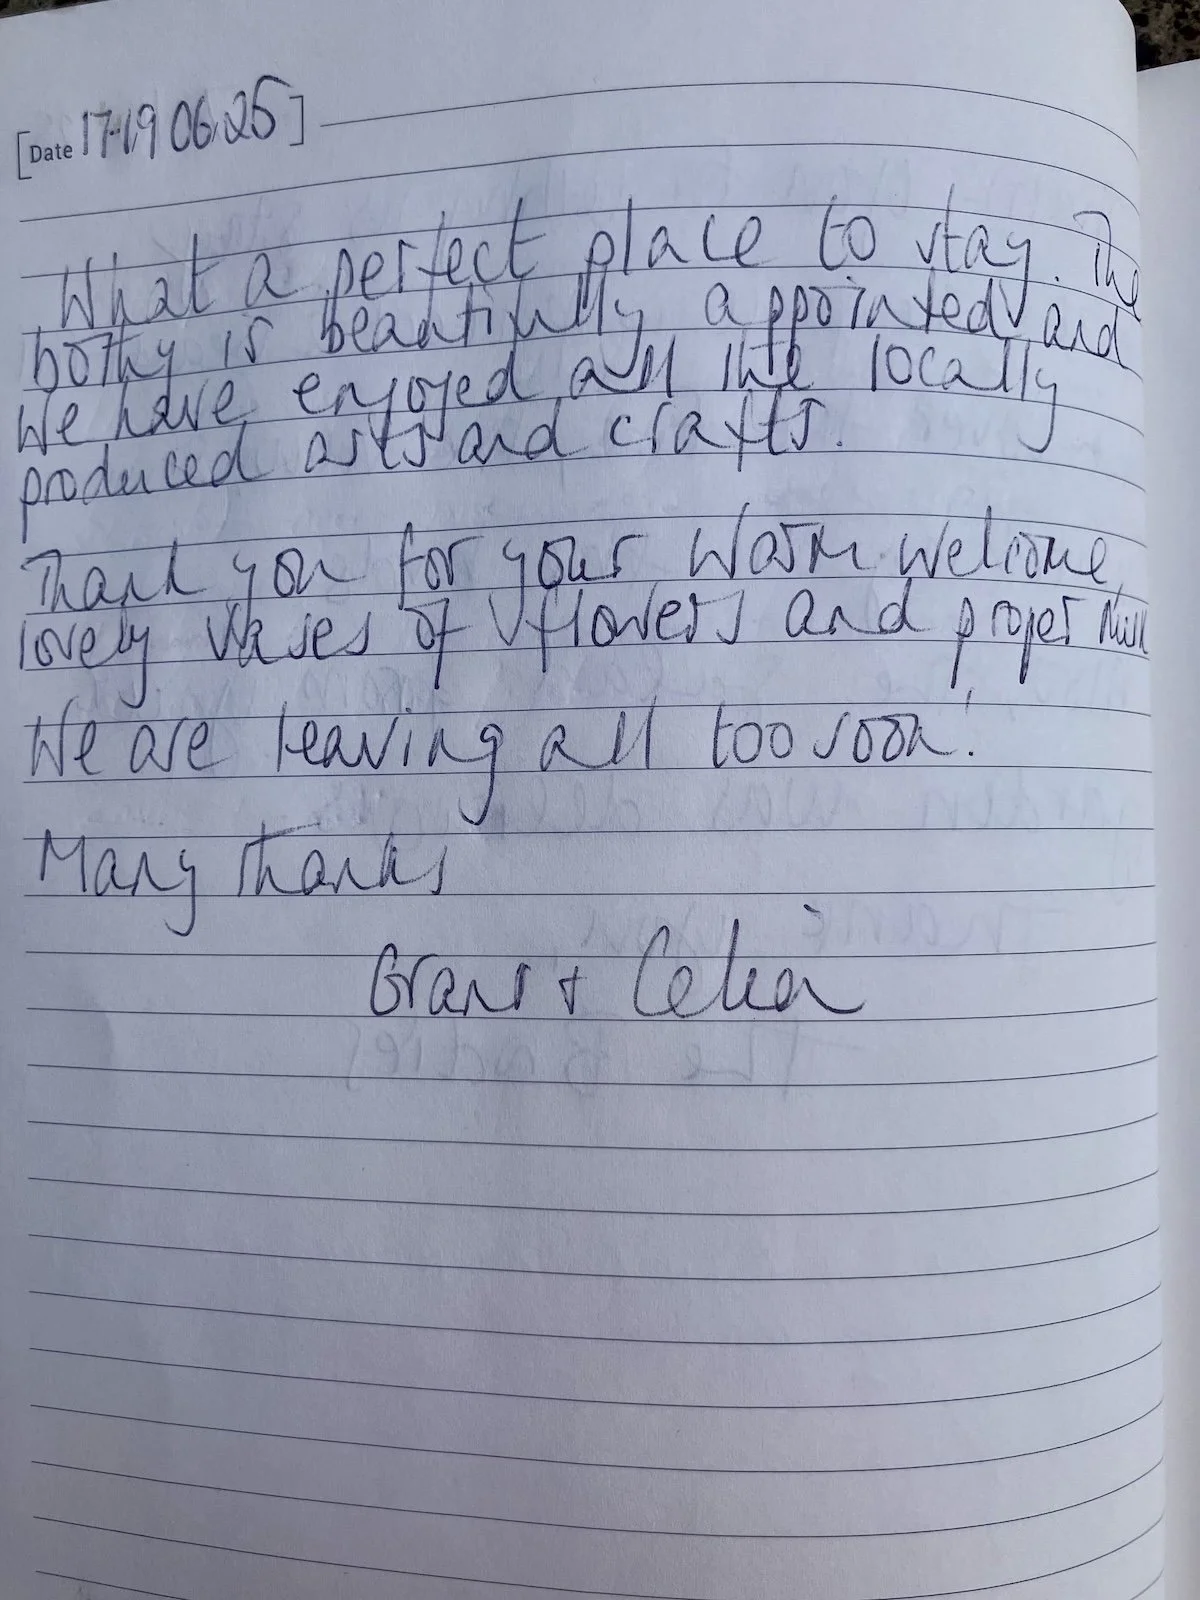 [Date 17-19 06.25]
What a perfect place to stay. The
bothy is beautifully appointed and
We have enjoyed all the locally
produced arts and crafts.
Thank you for your warm welcome,
lovely vases of flowers and proper milk
We are leaving all too soon!
Many thanks
Grant + Celia